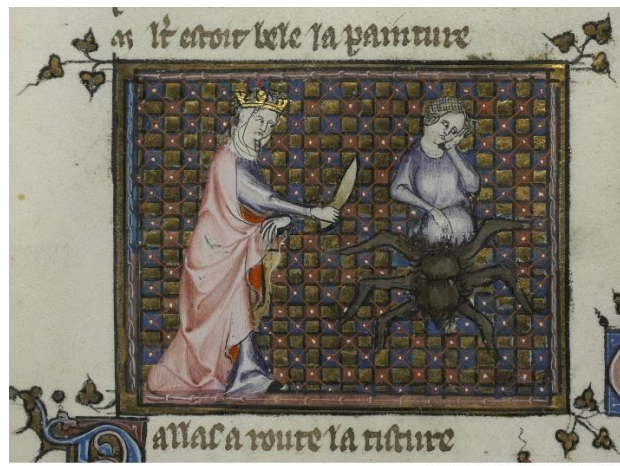 M lt estoit bele la painture
Pallas a route la tisture